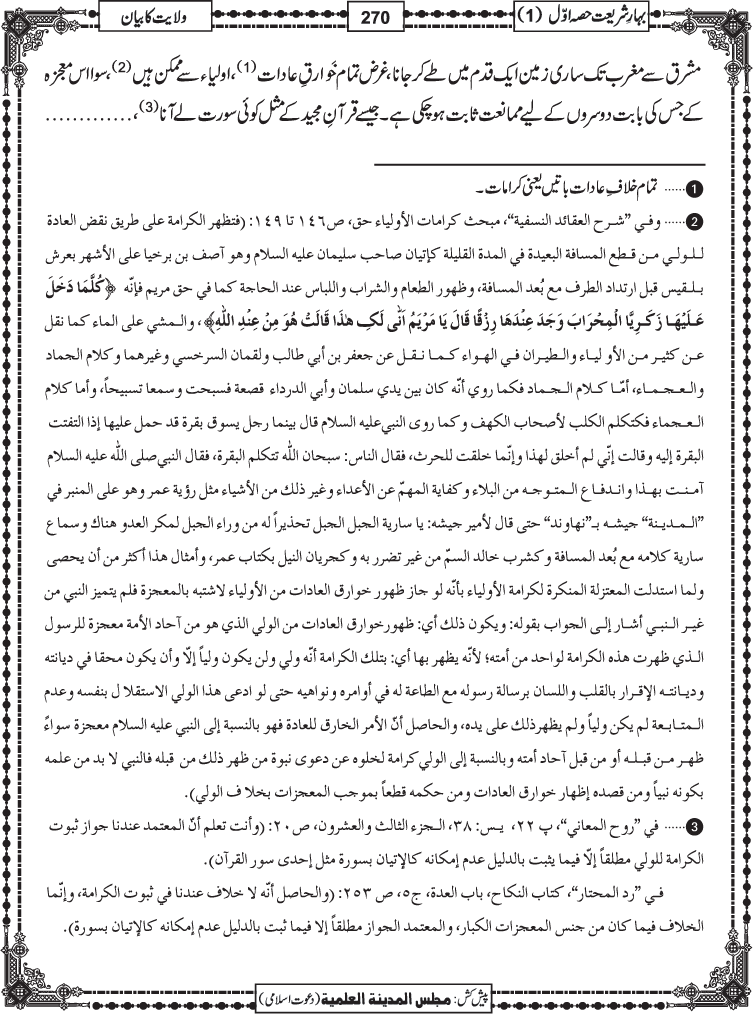 بہار شریعت حصہ اوّل (1)
270
ولایت کا بیان
مشرق سے مغرب تک ساری زمین ایک قدم میں طے کر جانا، غرض تمام خَوارقِ عادات (1)، اولیاء سے ممکن ہیں (2)، سوا اس معجزہ
کے جس کی بابت دوسروں کے لیے ممانعت ثابت ہو چکی ہے۔ جیسے قرآنِ مجید کے مثل کوئی سورت لے آنا (3)، .............
1 ...... تمام خلافِ عادات باتیں یعنی کرامات۔
2 ...... وفي ”شرح العقائد النسفية“، مبحث كرامات الأولياء حق، ص١٤٦ تا ١٤٩: (فتظهر الكرامة على طريق نقض العادة
للولي من قطع المسافة البعيدة في المدة القليلة كإتيان صاحب سليمان عليه السلام وهو آصف بن برخيا على الأشهر بعرش
بلقيس قبل ارتداد الطرف مع بُعد المسافة، وظهور الطعام والشراب واللباس عند الحاجة كما في حق مريم فإنّه ﴿كُلَّمَا دَخَلَ
عَلَيْهَا زَكَرِيَّا الْمِحْرَابَ وَجَدَ عِنْدَهَا رِزْقًا قَالَ يَا مَرْيَمُ اَنّٰى لَكِ هٰذَا قَالَتْ هُوَ مِنْ عِنْدِ اللّٰهِ﴾، والمشي على الماء كما نقل
عن كثير من الأولياء والطيران في الهواء كما نقل عن جعفر بن أبي طالب ولقمان السرخسي وغيرهما وكلام الجماد
والعجماء، أمّا كلام الجماد فكما روي أنّه كان بين يدي سلمان وأبي الدرداء قصعة فسبحت وسمعا تسبيحاً، وأما كلام
العجماء فكتكلم الكلب لأصحاب الكهف وكما روى النبي عليه السلام قال بينما رجل يسوق بقرة قد حمل عليها إذا التفتت
البقرة إليه وقالت إنّي لم أخلق لهذا وإنّما خلقت للحرث، فقال الناس: سبحان الله تتكلم البقرة، فقال النبي صلى الله عليه السلام
آمنت بهذا واندفاع المتوجه من البلاء وكفاية المهمّ عن الأعداء وغير ذلك من الأشياء مثل رؤية عمر وهو على المنبر في
”المدينة“ جيشه بـ”نهاوند“ حتى قال لأمير جيشه: يا سارية الجبل الجبل تحذيراً له من وراء الجبل لمكر العدو هناك وسماع
سارية كلامه مع بُعد المسافة وكشرب خالد السمّ من غير تضرر به وكجريان النيل بكتاب عمر، وأمثال هذا أكثر من أن يحصى
ولما استدلت المعتزلة المنكرة لكرامة الأولياء بأنّه لو جاز ظهور خوارق العادات من الأولياء لاشتبه بالمعجزة فلم يتميز النبي من
غير النبي أشار إلى الجواب بقوله: ويكون ذلك أي: ظهور خوارق العادات من الولي الذي هو من آحاد الأمة معجزة للرسول
الذي ظهرت هذه الكرامة لواحد من أمته؛ لأنّه يظهر بها أي: بتلك الكرامة أنّه ولي ولن يكون ولياً إلّا وأن يكون محقا في ديانته
وديانته الإقرار بالقلب واللسان برسالة رسوله مع الطاعة له في أوامره ونواهيه حتى لو ادعى هذا الولي الاستقلال بنفسه وعدم
المتابعة لم يكن ولياً ولم يظهر ذلك على يده، والحاصل أنّ الأمر الخارق للعادة فهو بالنسبة إلى النبي عليه السلام معجزة سواءً
ظهر من قبله أو من قبل آحاد أمته وبالنسبة إلى الولي كرامة لخلوه عن دعوى نبوة من ظهر ذلك من قبله فالنبي لا بد من علمه
بكونه نبياً ومن قصده إظهار خوارق العادات ومن حكمه قطعاً بموجب المعجزات بخلاف الولي).
3 ...... في ”روح المعاني“، پ ٢٢، يـس: ٣٨، الجزء الثالث والعشرون، ص٢٠: (وأنت تعلم أنّ المعتمد عندنا جواز ثبوت
الكرامة للولي مطلقاً إلّا فيما يثبت بالدليل عدم إمكانه كالإتيان بسورة مثل إحدى سور القرآن).
في ”رد المحتار“، كتاب النكاح، باب العدة، ج٥، ص ٢٥٣: (والحاصل أنّه لا خلاف عندنا في ثبوت الكرامة، وإنّما
الخلاف فيما كان من جنس المعجزات الكبار، والمعتمد الجواز مطلقاً إلا فيما ثبت بالدليل عدم إمكانه كالإتيان بسورة).
پیش کش: مجلس المدينة العلمية (دعوت اسلامی)